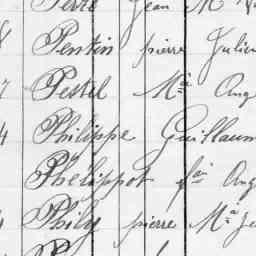 Jean M
Pentin pierre Julien
7 Pestel M.ª Ang
4 Philippe Guillaum
Phélippot f.ᵃⁱˢ Ang
Phily pierre M.ª Je